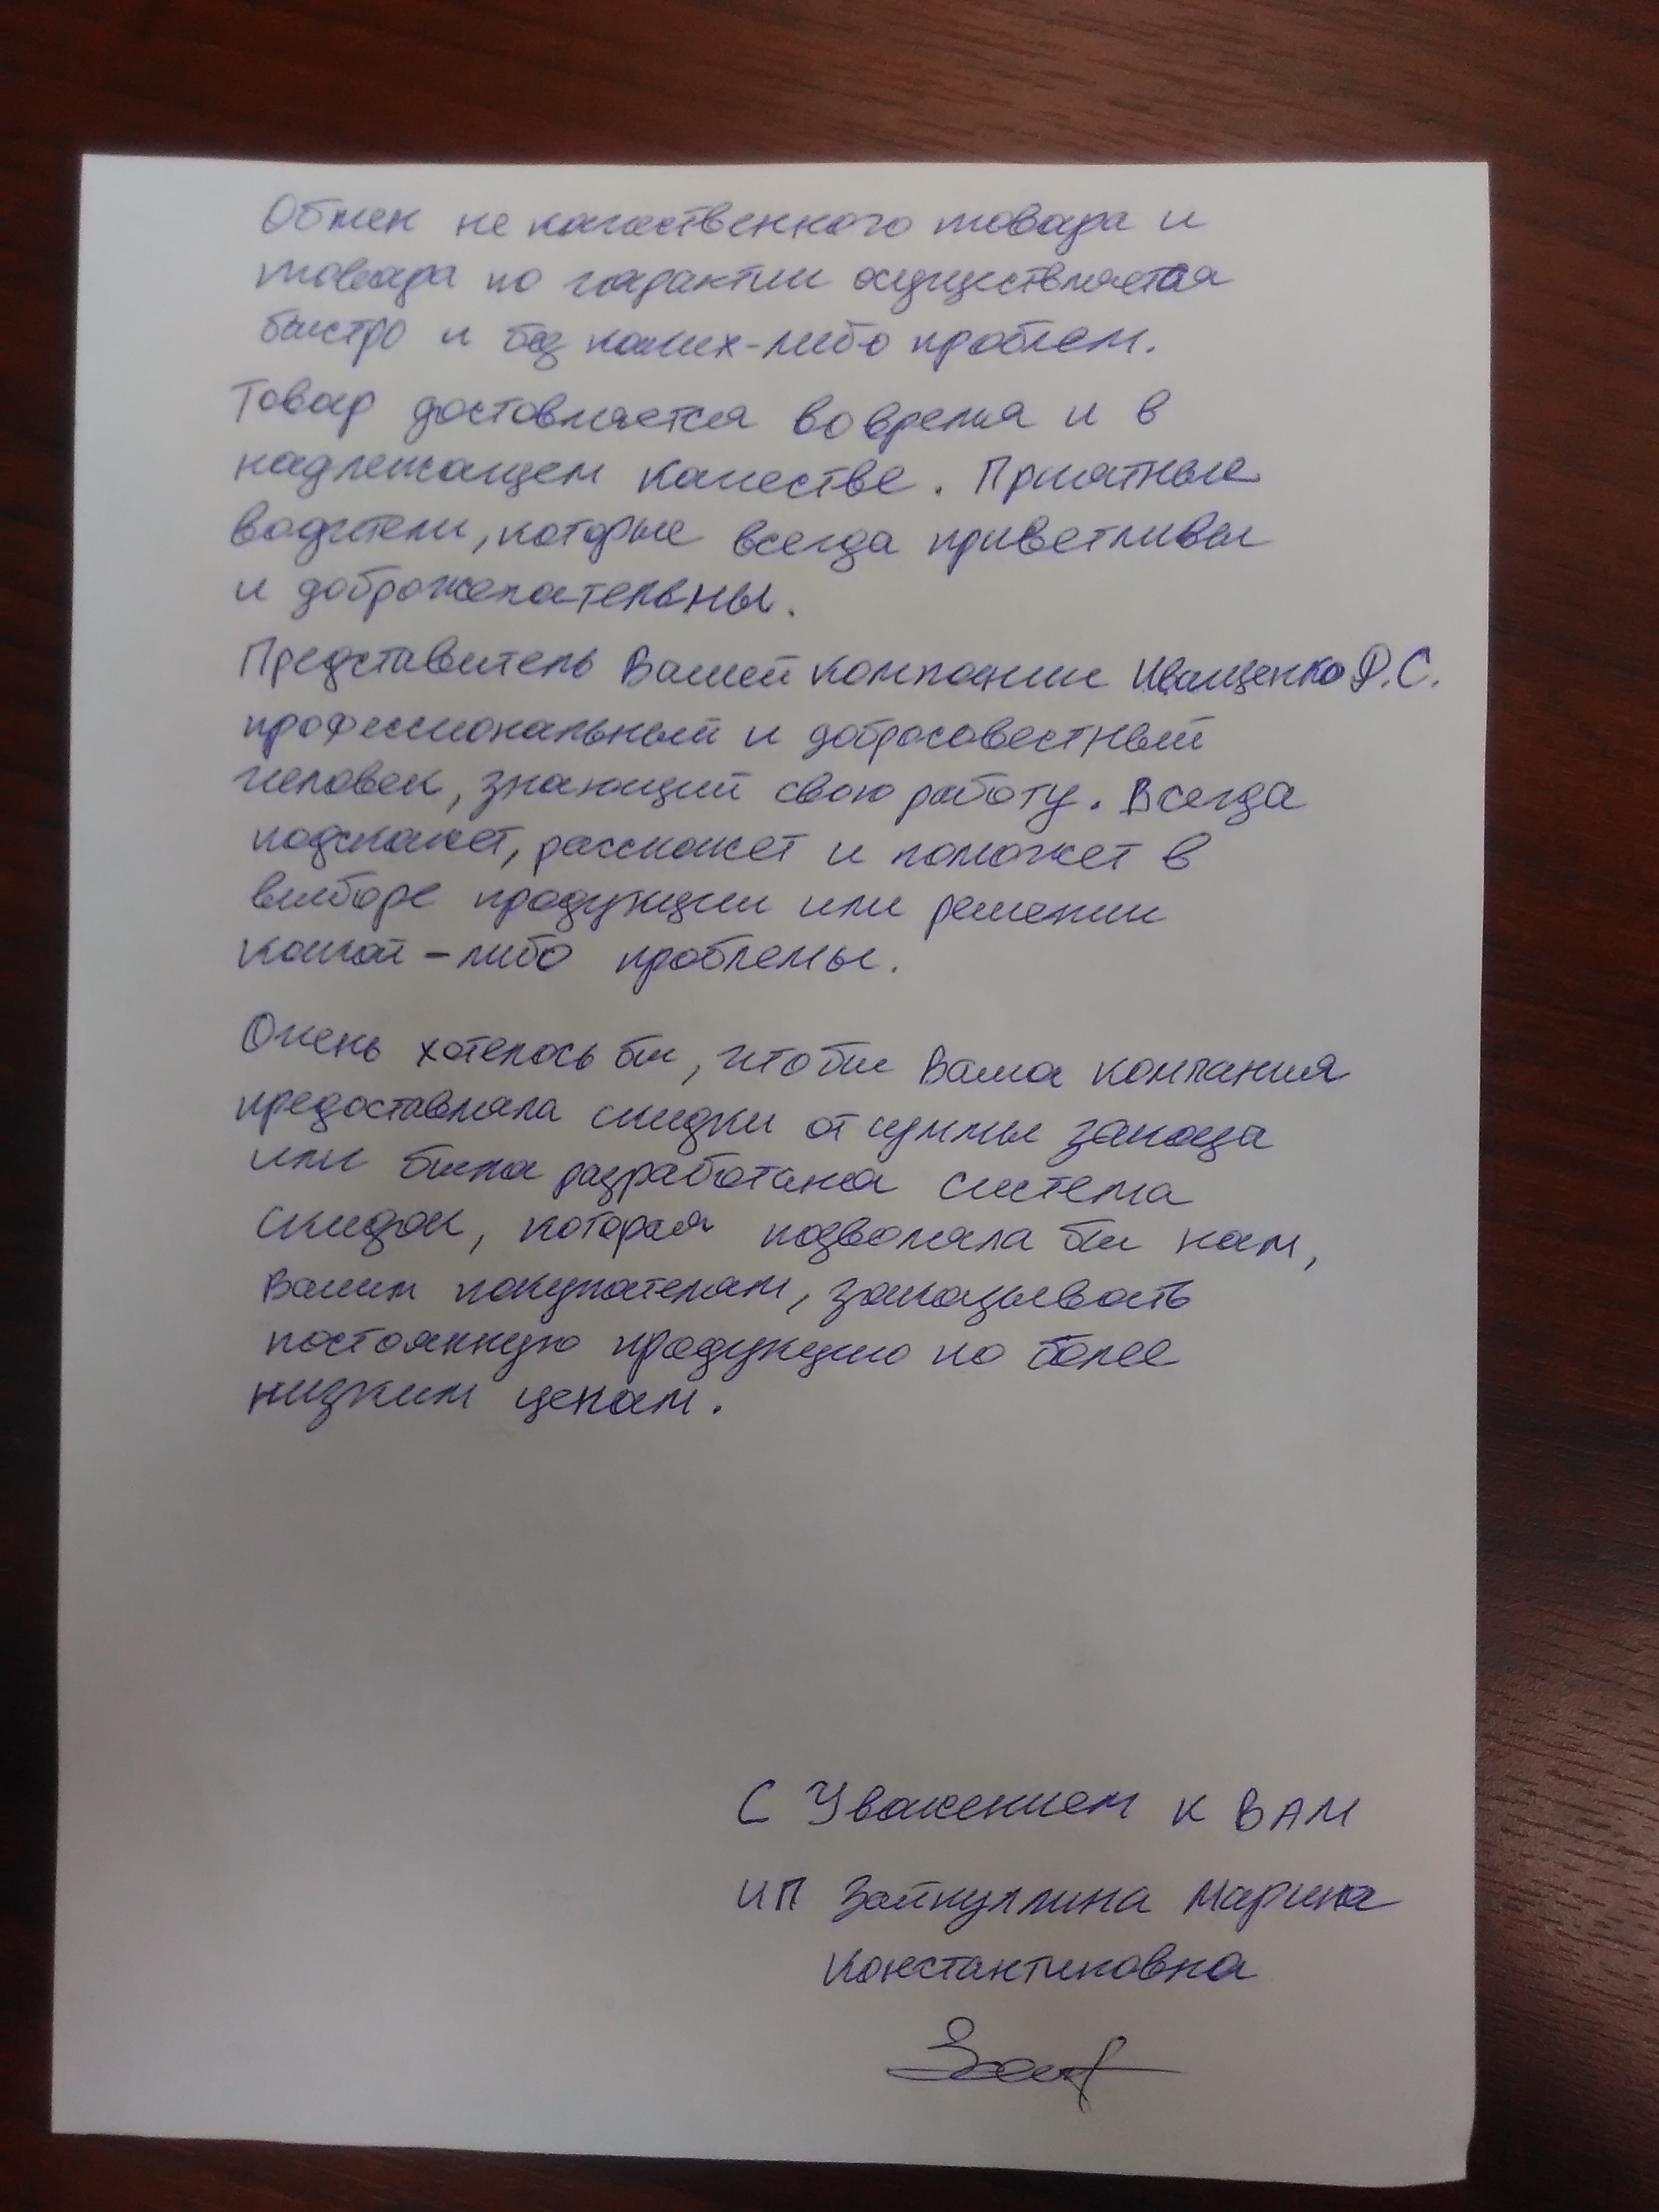 Обмен не качественного товара и
товара по гарантии осуществляется
быстро и без каких-либо проблем.
Товар доставляется вовремя и в
надлежащем качестве. Приятные
водители, которые всегда приветливы
и доброжелательны.
Представитель Вашей компании Иващенко Р.С.
профессиональный и добросовестный
человек, знающий свою работу. Всегда
подскажет, расскажет и поможет в
выборе продукции или решении
какой-либо проблемы.
Очень хотелось бы, чтобы Ваша компания
предоставляла скидки от суммы заказа
или была разработана система
скидок, которая позволяла бы нам,
Вашим покупателям, заказывать
постоянную продукцию по более
низким ценам.
С Уважением к ВАМ
ИП Зайнуллина Марина
Константиновна